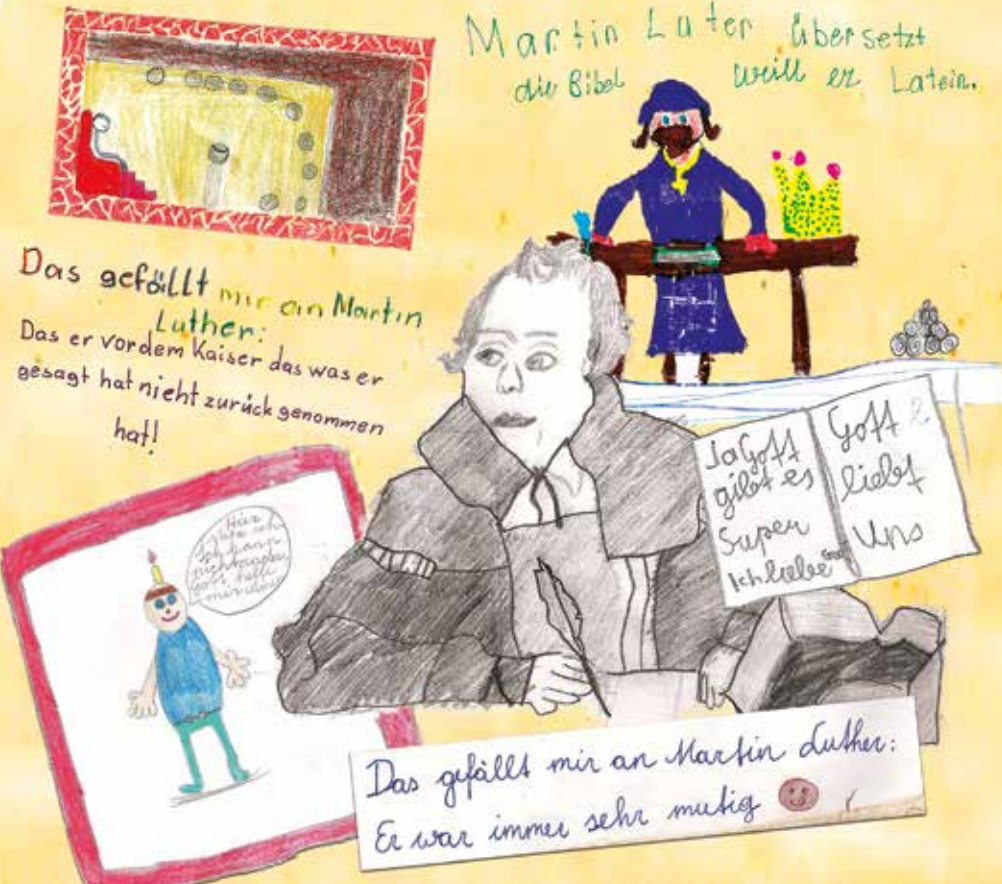 Martin Luter übersetzt
die Bibel weill er Latein.
Das gefällt mir an Martin
Luther:
Das er vor dem Kaiser das was er
gesagt hat nicht zurück genommen
hat!
Hier
ich
Ich kann
nicht anders
gott helfe
mir
Ja Gott
gibt es
Super
Ich liebe Gott
Gott
liebt
Uns
Das gefällt mir an Martin Luther:
Er war immer sehr mutig